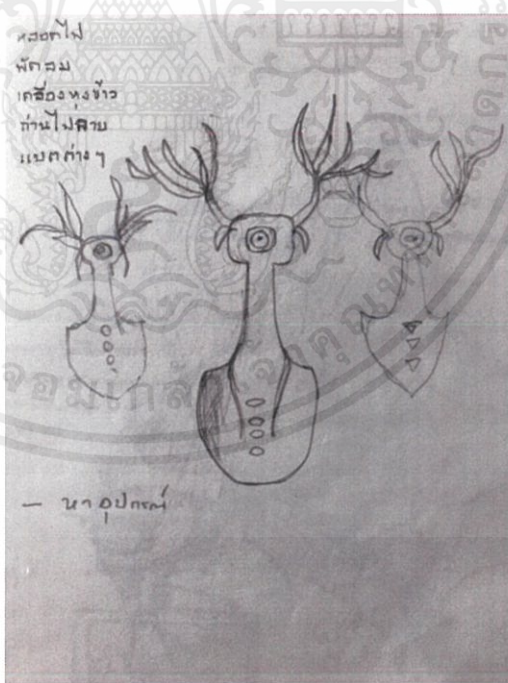 หลอดไฟ
พัดลม
เครื่องหุงข้าว
ถ่านไฟฉาย
แบตต่างๆ
– หาอุปกรณ์